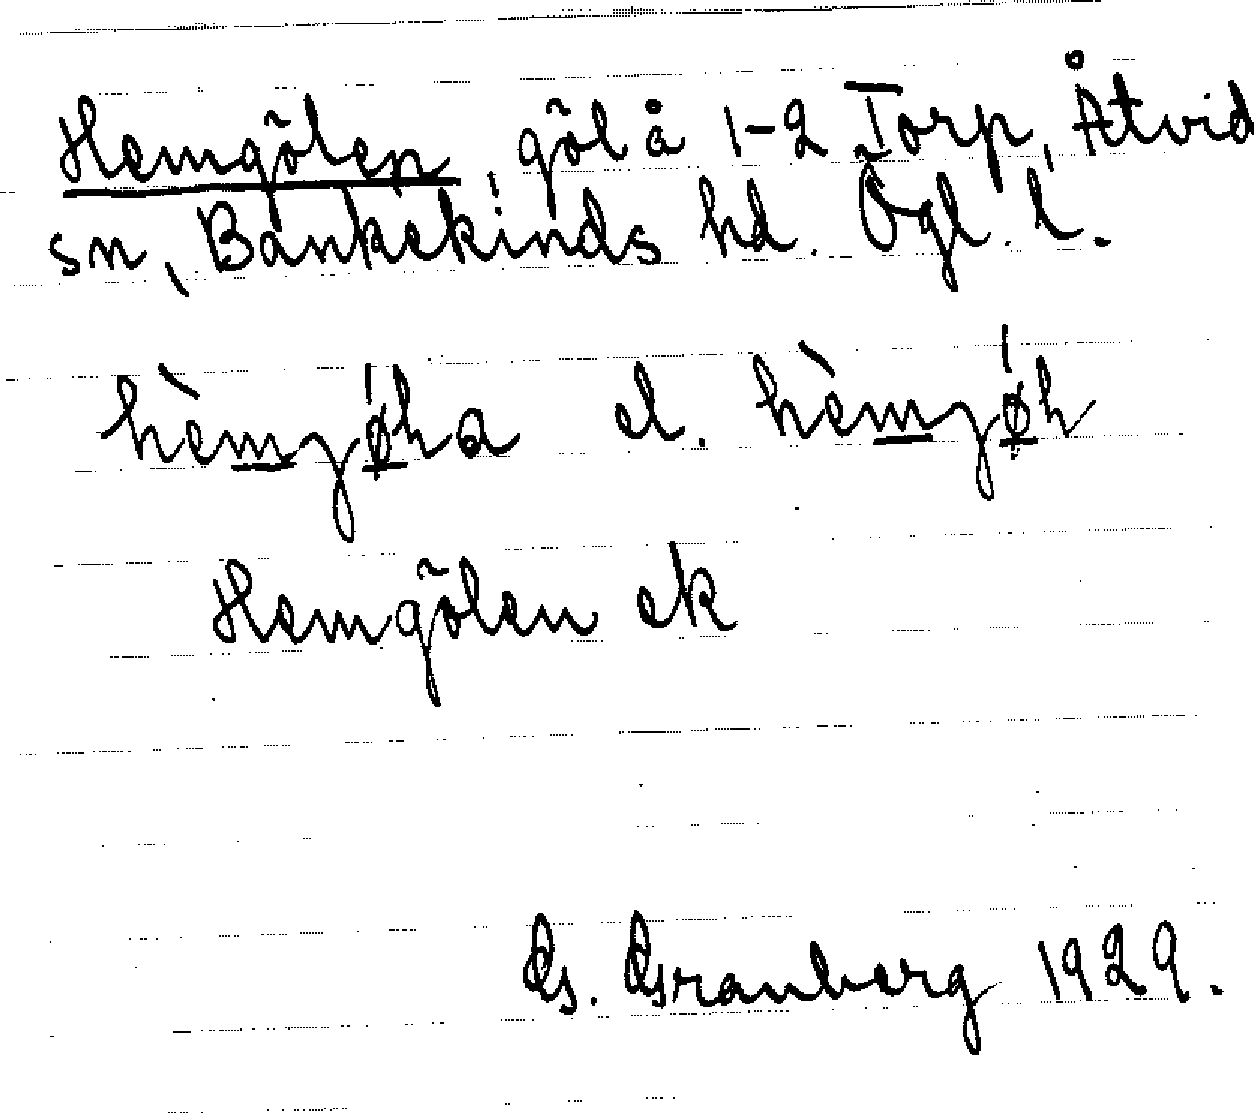 Hemgölen, göl å 1-2 Torp, Åtvid
sn, Bankekinds hd. Ögl. l.
hèmjø̱ha el. hèmjø̱h
Hemgölen ek
G. Granberg 1929.